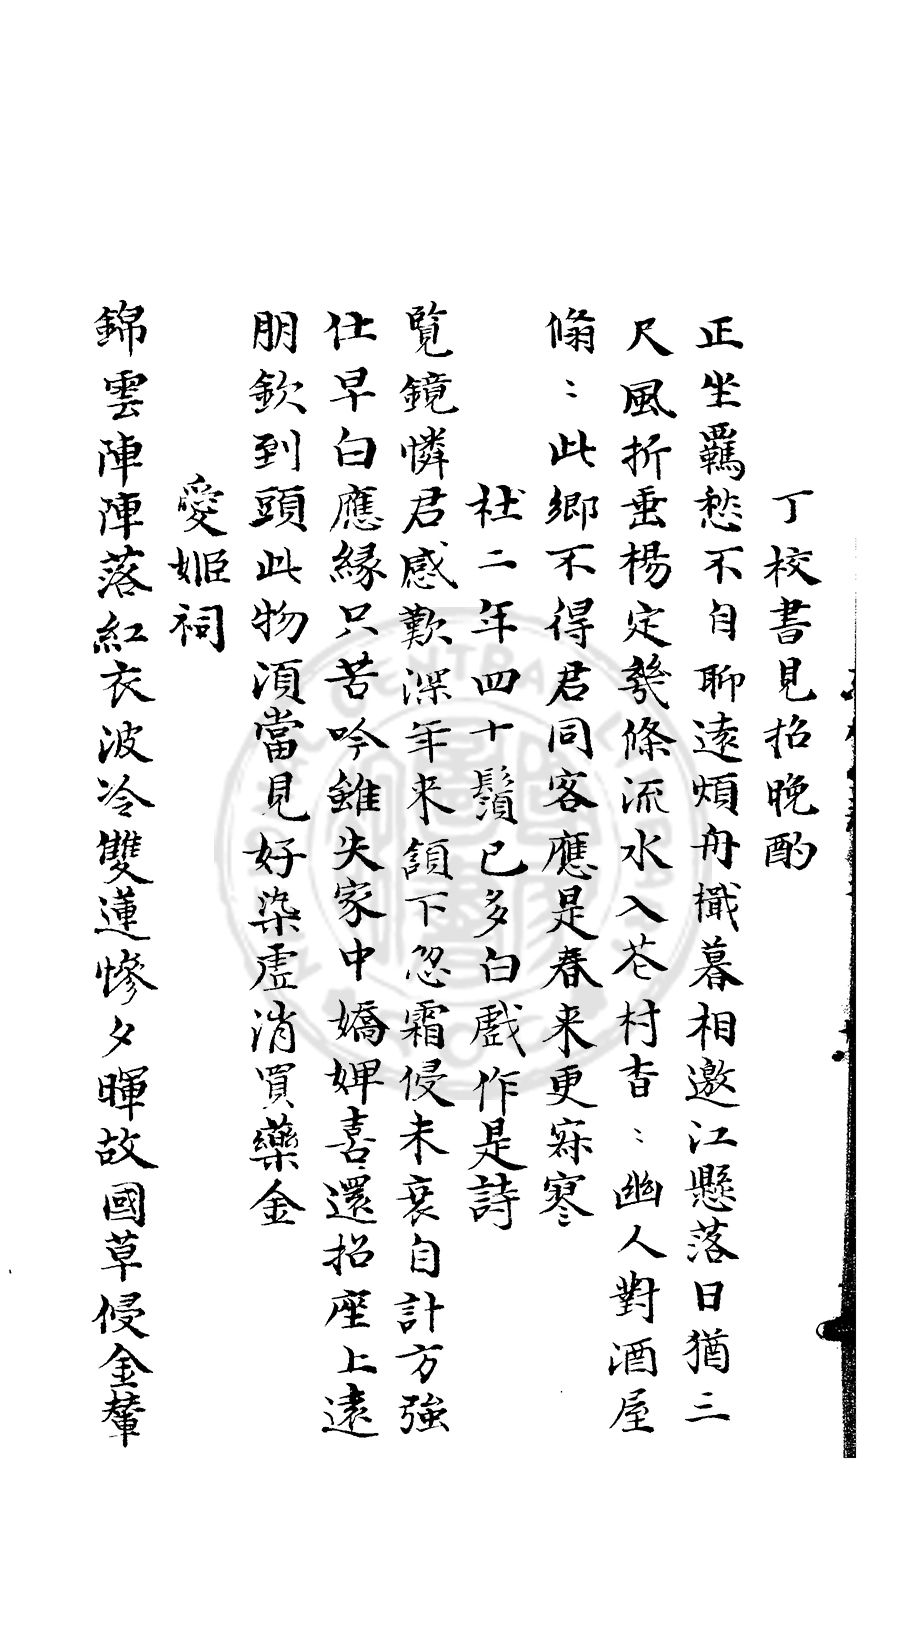 丁校書見招晚酌
正坐羈愁不自聊遠煩舟檝暮相邀江懸落日猶三
尺風折垂楊定幾條流水入花村杳〻幽人對酒屋
翛〻此鄉不得君同客應是春来更寂寥
杜二年四十鬚已多白戲作是詩
覽鏡憐君感歎深年来頷下忽霜侵未衰自計方強
仕早白應緣只苦吟雖失家中嬌婢喜還招座上遠
朋欽到頭此物須當見好染虛消買藥金
愛姬祠
錦雲陣陣落紅衣波冷雙蓮慘夕暉故國草侵金輦